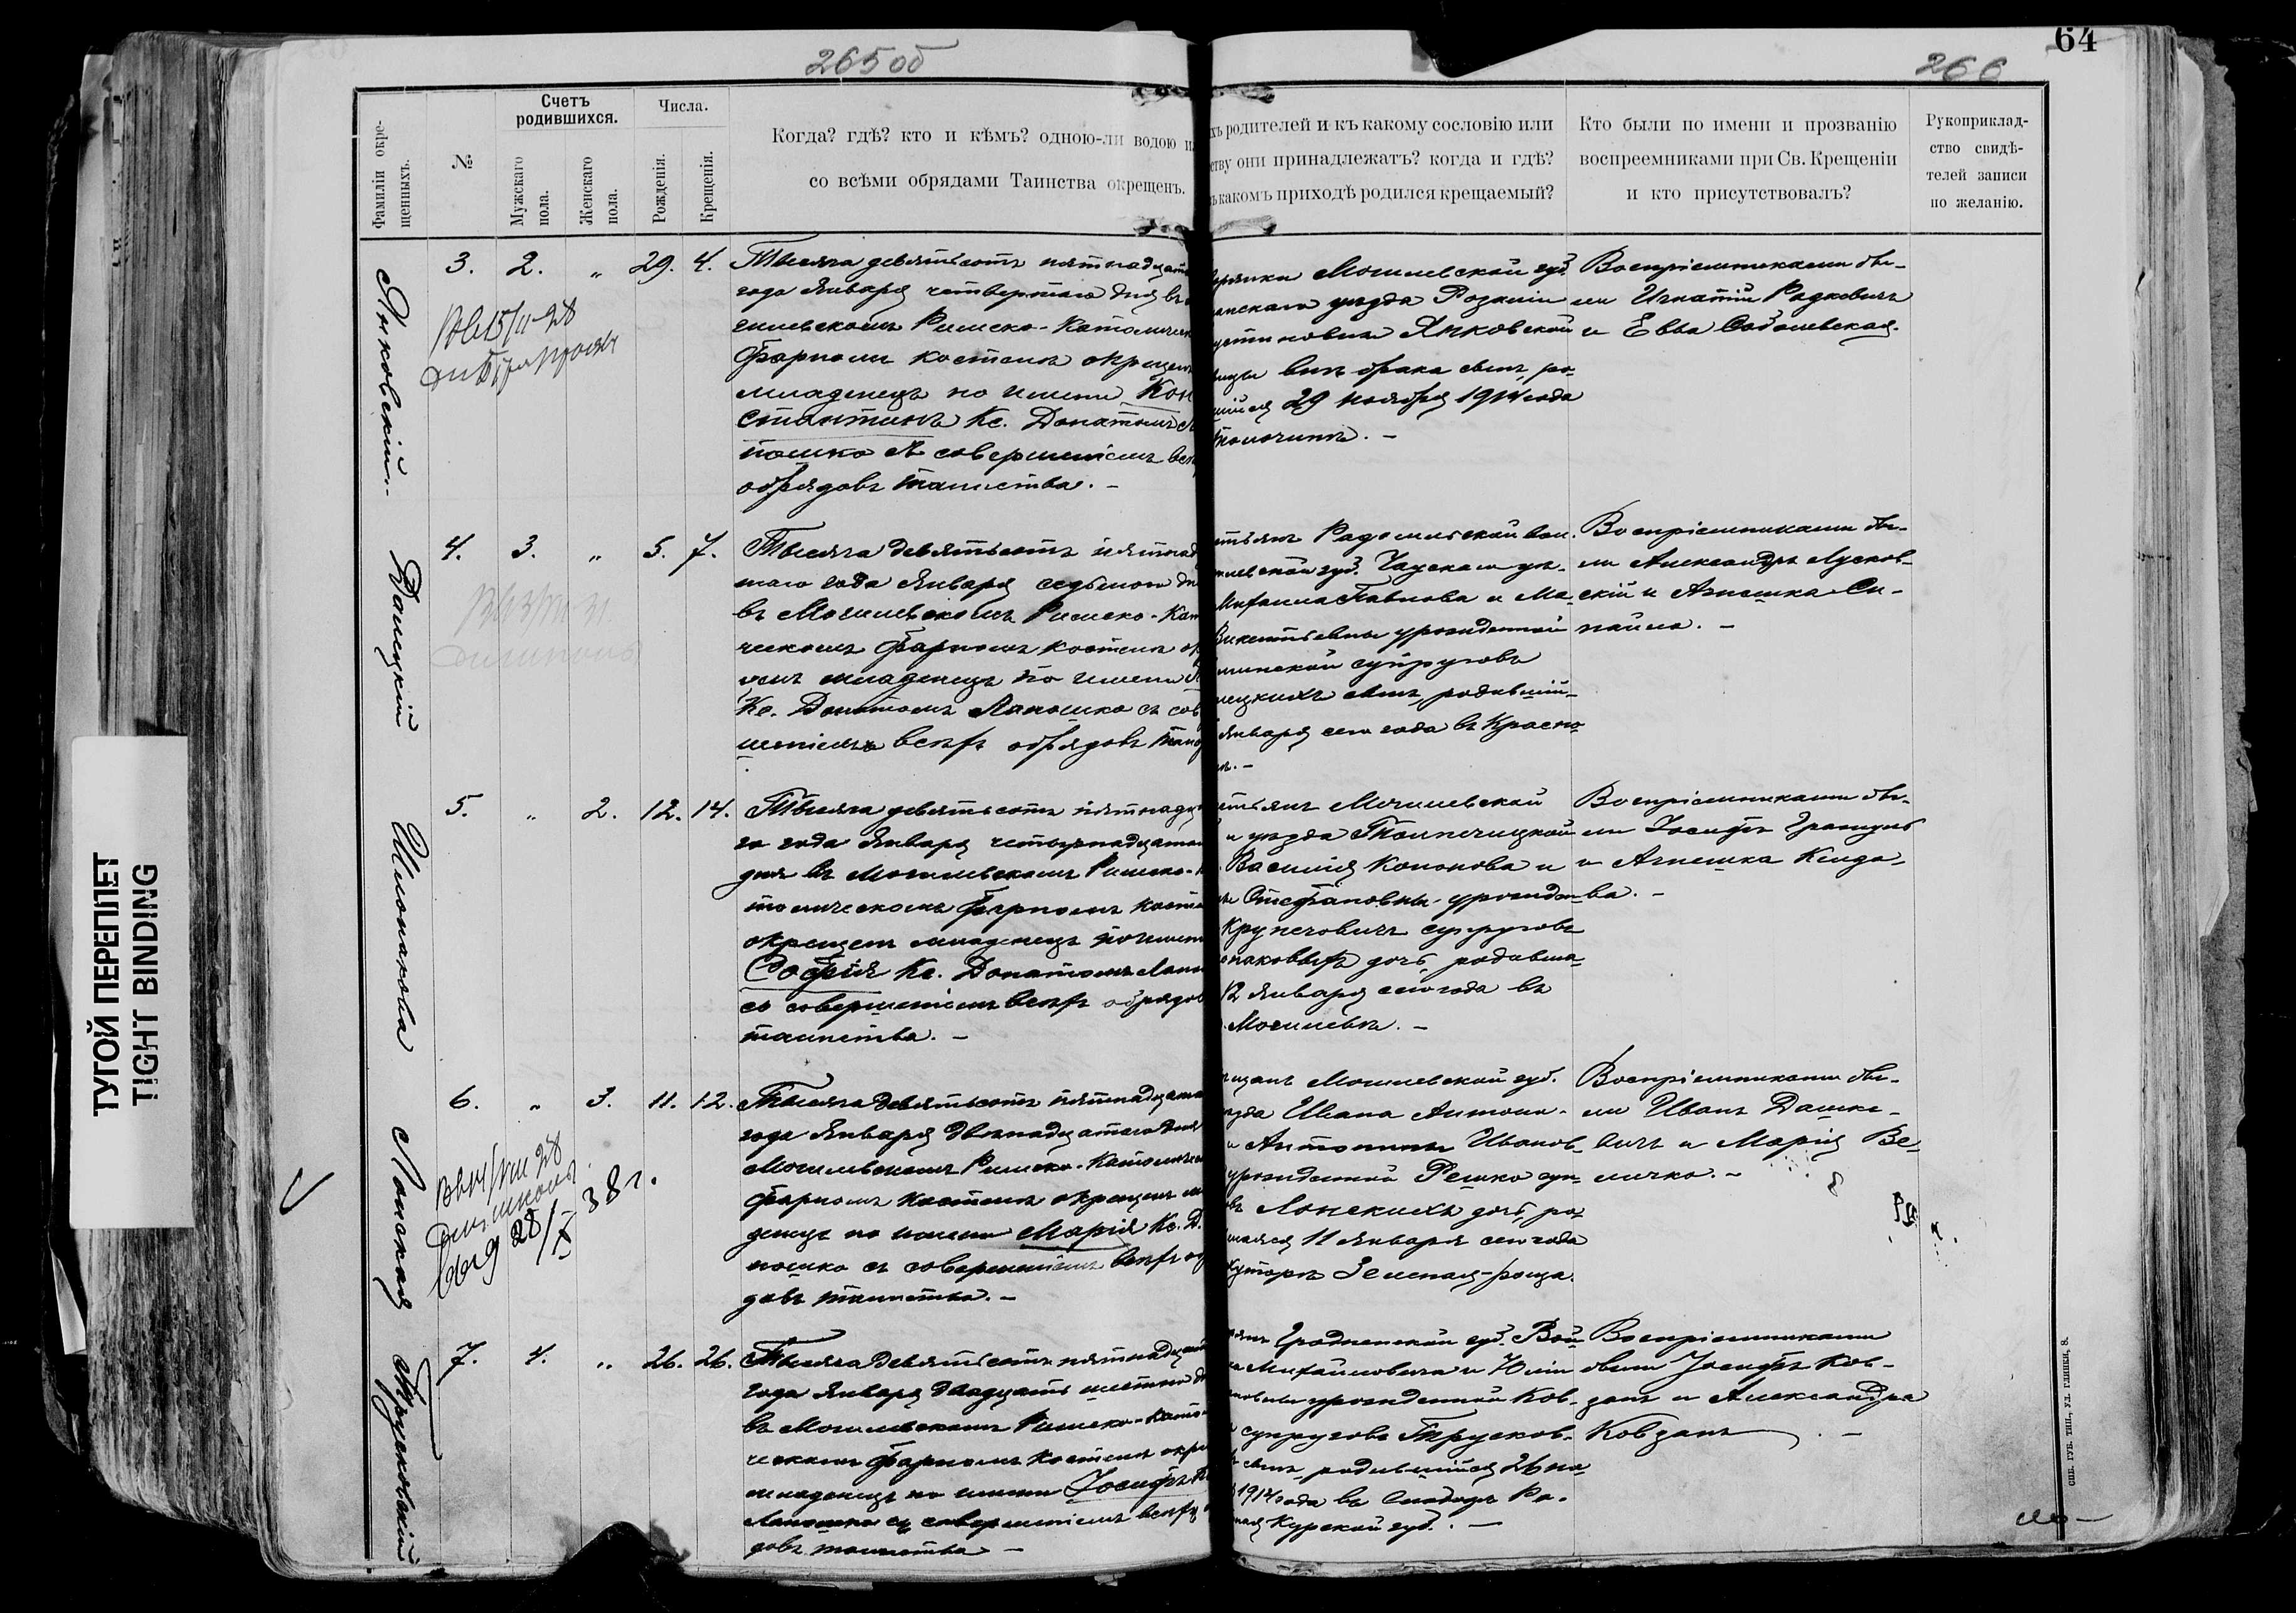 265об
64
266
Фамиліи окре-
щенныхъ.
№
Счетъ
родившихся.
Мужскаго
пола.
Женскаго
пола.
Числа.
Рожденія.
Крещенія.
Когда? гдѣ? кто и кѣмъ? одною-ли водою и
со всѣми обрядами Таинства окрещенъ.
хъ родителей и къ какому сословію или
ству они принадлежатъ? когда и гдѣ?
ъ какомъ приходѣ родился крещаемый?
Кто были по имени и прозванію
воспреемниками при Св. Крещеніи
и кто присутствовалъ?
Рукоприклад-
ство свидѣ-
телей записи
по желанію.
Янковскій
3. 2. " 29. 4.
Тысяча девятьсотъ пятнадцат
года Января четвертаго дня въ
гилевскомъ Римско-Католическ
Фарномъ костелѣ окрещен
младенецъ по имени Кон
стантинъ Кс. Донатомъ
пошко съ совершеніемъ всѣ
обрядовъ таинства. -
рянки Могилевской губ.
уѣзда Розаліи
устиновны Янковской
внѣ брака сынъ, ро-
шійся 29 ноября 1914 года
Толочинѣ. -
Воспріемниками бы-
ли Игнатій Радкевичъ
и Евва Соболевская.
Далецкій
4. 3. " 5. 7.
Тысяча девятьсотъ пятнад
таго года Января седьмого дн
въ Могилевскомъ Римско-Кат
ческомъ Фарномъ костелѣ ок
щенъ младенецъ по имени
Кс. Донатомъ Лапошко съ сов
шеніемъ всѣхъ обрядовъ таин
стьянъ Радомльской вол.
илевской губ. Чаусскаго уѣ-
Михаила Павлова и Ма-
Викентьевны урожденной
минской супруговъ
лецкихъ сынъ, родившій-
Января сего года въ Красно-
Воспріемниками бы-
ли Александръ Лусков-
скій и Агнешка Си-
пайло. -
Шмонакова
5. " 2. 12. 14.
Тысяча девятьсотъ пятнадц
го года Января четырнадцатаго
дня въ Могилевскомъ Римско-К
толическомъ Фарномъ косте
окрещенъ младенецъ по имени
Софія Кс. Донатомъ Лапо
съ совершеніемъ всѣхъ обрядов
таинства. -
стьянъ Могилевской
и уѣзда Толпечицкой
Василія Кононова и
Стефановны урожден-
Крупеховичъ супруговъ
онаковыхъ дочь, родивша-
12 Января сего года въ
Могилевѣ. -
Воспріемниками бы-
ли Іосифъ
и Агнешка Кенда-
ва. -
Лонская
6. " 3. 11. 12.
38 г.
Тысяча девятьсотъ пятнадцата
года Января двѣнадцатаго дня
Могилевскомъ Римско-Католическ
Фарномъ костелѣ окрещенъ мла
денецъ по имени Марія Кс. Д.
пошко съ совершеніемъ всѣхъ об
довъ таинства. -
щанъ Могилевской губ.
уѣзда Ивана Антони-
и Антонины Иванов-
урожденной Решко суп-
въ Лонскихъ дочь, ро-
шаяся 11 Января сего года
хуторѣ Зеленая-роща.
Воспріемниками бы-
ли Иванъ Дашке-
вичъ и Марія Ве-
личко. -
Трусковскій
7. 4. " 26. 26.
Тысяча девятьсотъ пятнадцат
года Января двадцать шестого д
въ Могилевскомъ Римско-Като
ческомъ Фарномъ костелѣ окре
младенецъ по имени Іосифъ Кс
Лапошко съ совершеніемъ всѣхъ
довъ таинства -
Гродненской губ. Вой-
Михайловича и Юліи
урожденной Ков-
супруговъ Трусков-
сынъ, родившійся 26 но-
1914 года въ Слободѣ Ра-
Курской губ. -
Воспріемниками
были Іосифъ Ков-
занъ и Александра
Ковзанъ -
ТУГОЙ ПЕРЕПЛЕТ
TIGHT BINDING
СПБ. ГУБ. ТИП., УЛ. ГЛИНКИ, 8.